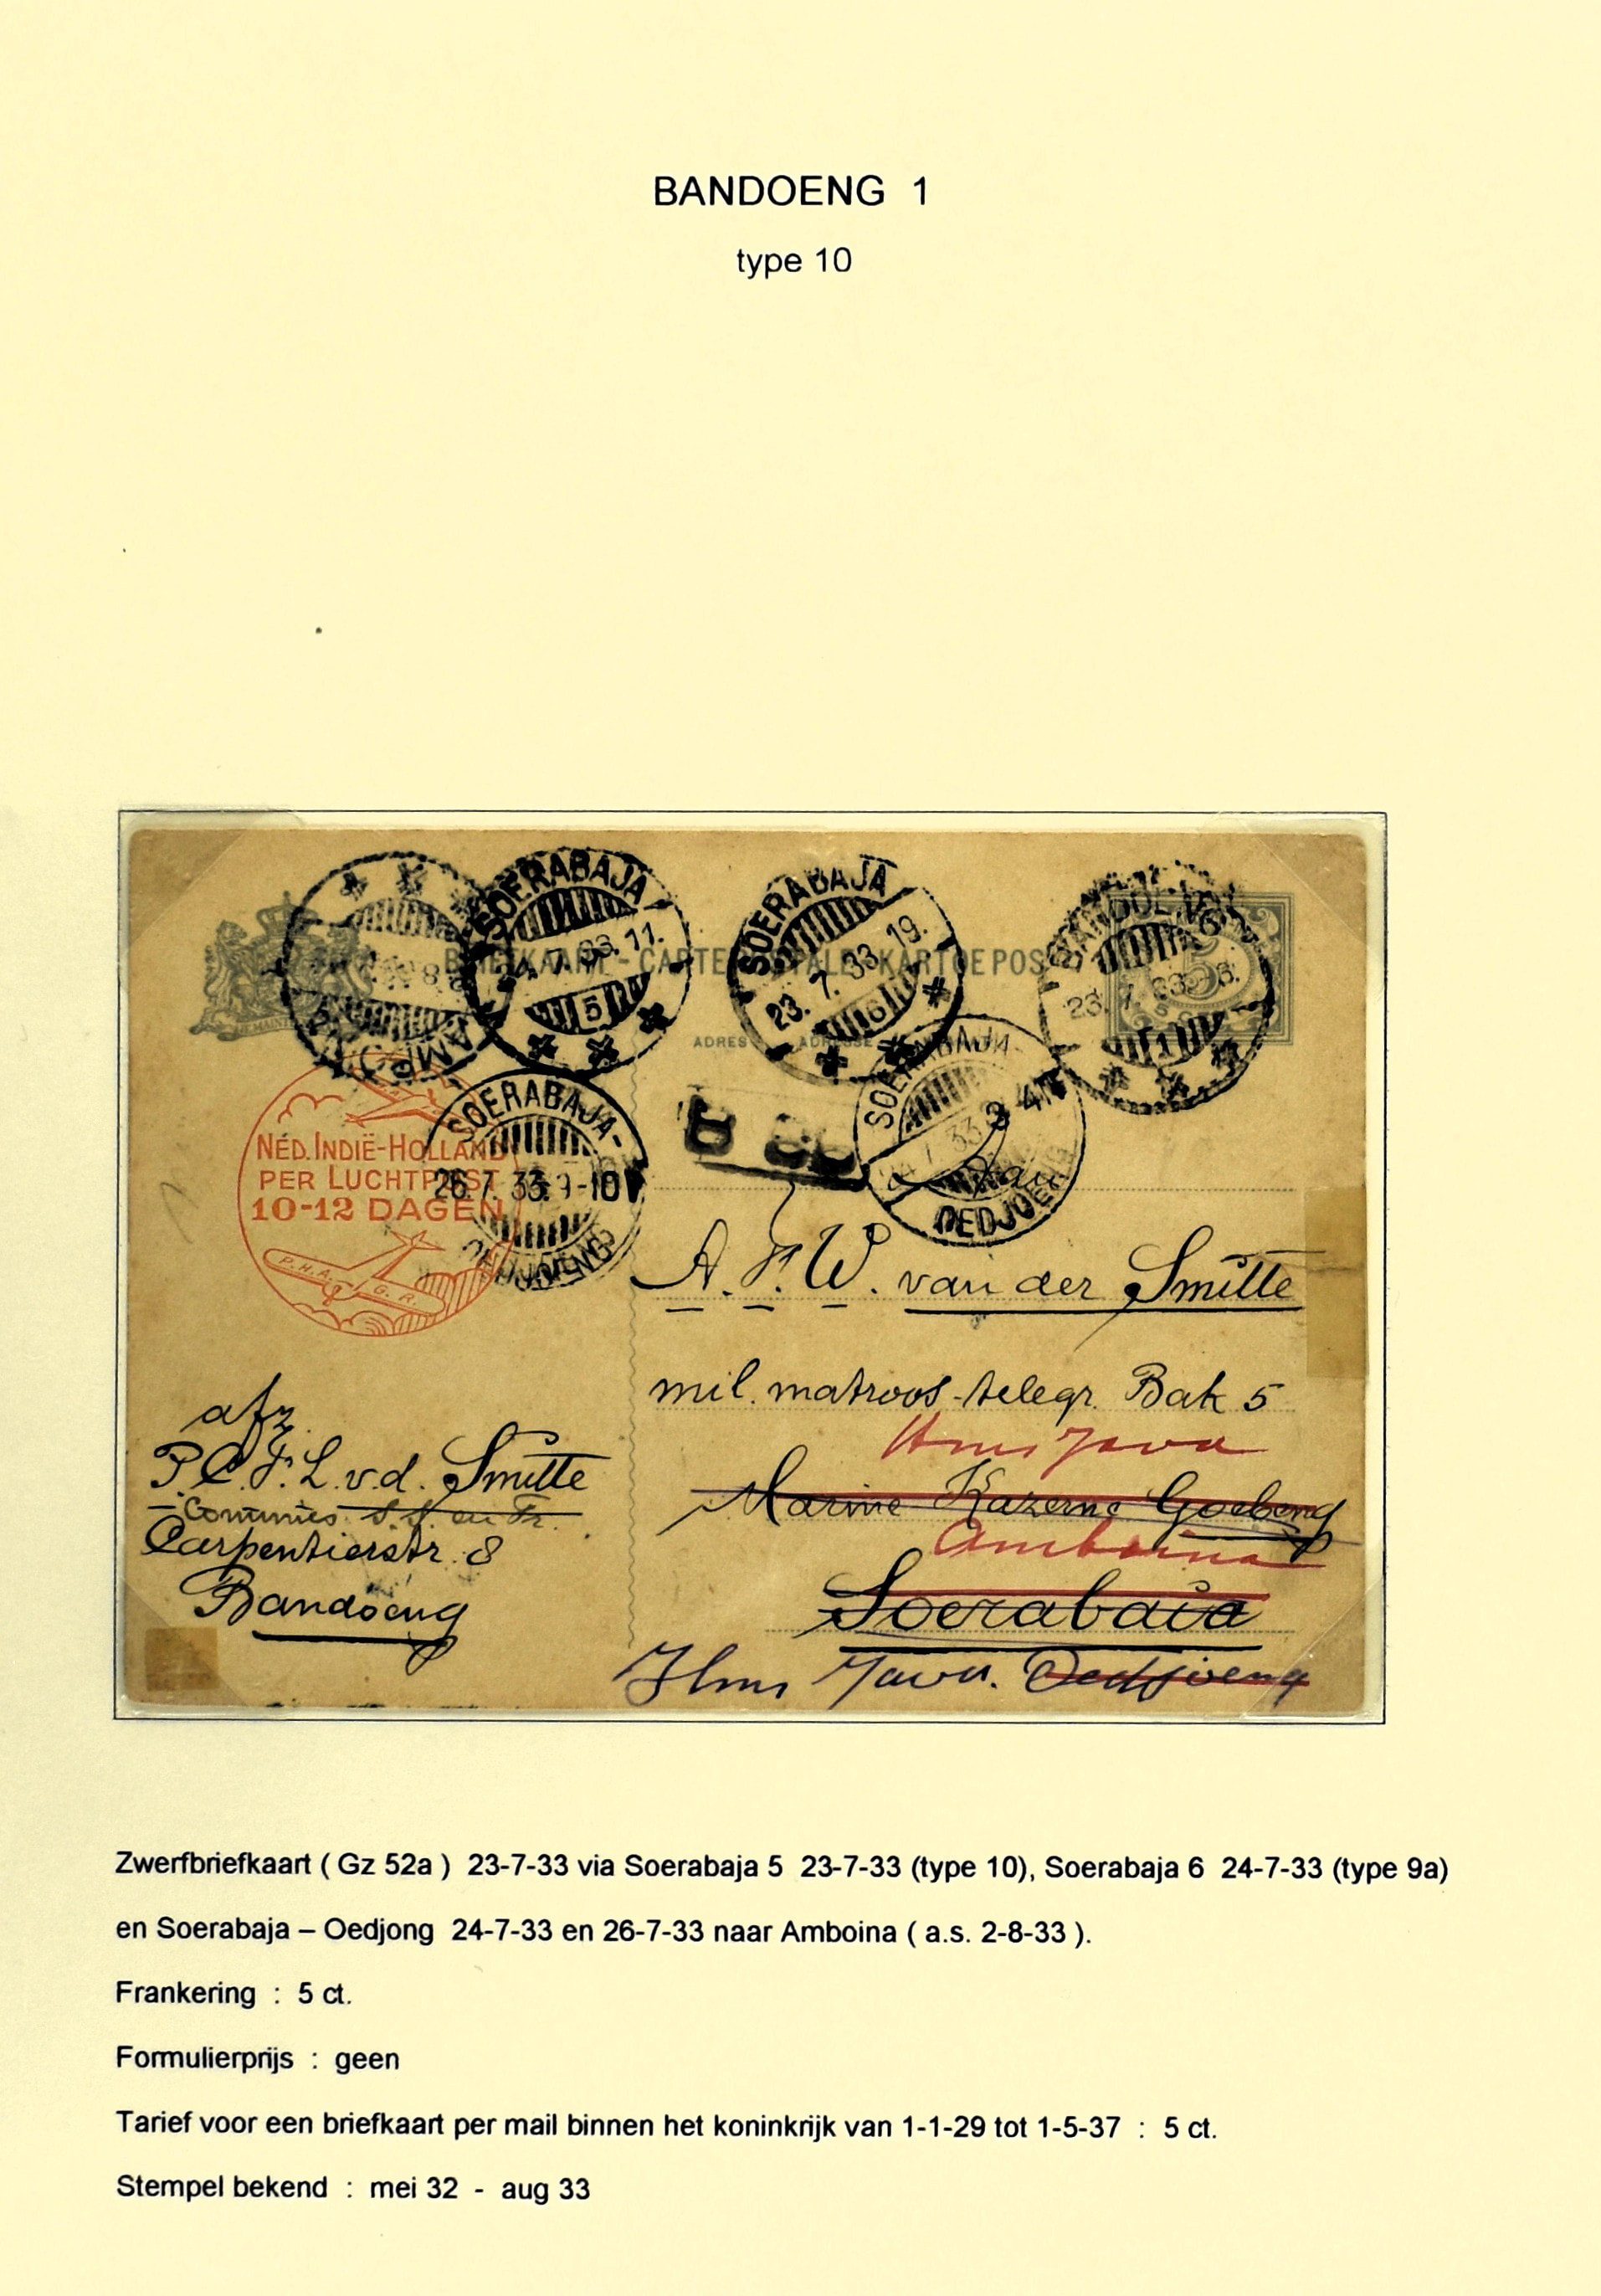 BANDOENG 1
type 10
SOERABAJA
24.7.33.11.
5
SOERABAJA
23.7.33.19.
6
BANDOENG
23.7.33
1
5
BRIEFKAART - CARTE POSTALE - KARTOEPOS
ADRES ADRESSE
SOERABAJA
24.7.33
OEDJOENG
NED. INDIË-HOLLAND
PER LUCHTPOST
10-12 DAGEN
P.H.A. G.R.
SOERABAJA-
26.7.33.9-10V
OEDJOENG
A. F. W. van der Smitte
mil. matroos-telegr. Bak 5
Hms Java
Marine Kazerne Goebeng
Amboina
Soerabaia
Hms Java. Oedjoeng
afz.
P.C.F.L. v.d. Smitte
Commies S.S. en Tr.
Carpentierstr. 8
Bandoeng
Zwerfbriefkaart ( Gz 52a ) 23-7-33 via Soerabaja 5 23-7-33 (type 10), Soerabaja 6 24-7-33 (type 9a)
en Soerabaja – Oedjong 24-7-33 en 26-7-33 naar Amboina ( a.s. 2-8-33 ).
Frankering : 5 ct.
Formulierprijs : geen
Tarief voor een briefkaart per mail binnen het koninkrijk van 1-1-29 tot 1-5-37 : 5 ct.
Stempel bekend : mei 32 - aug 33